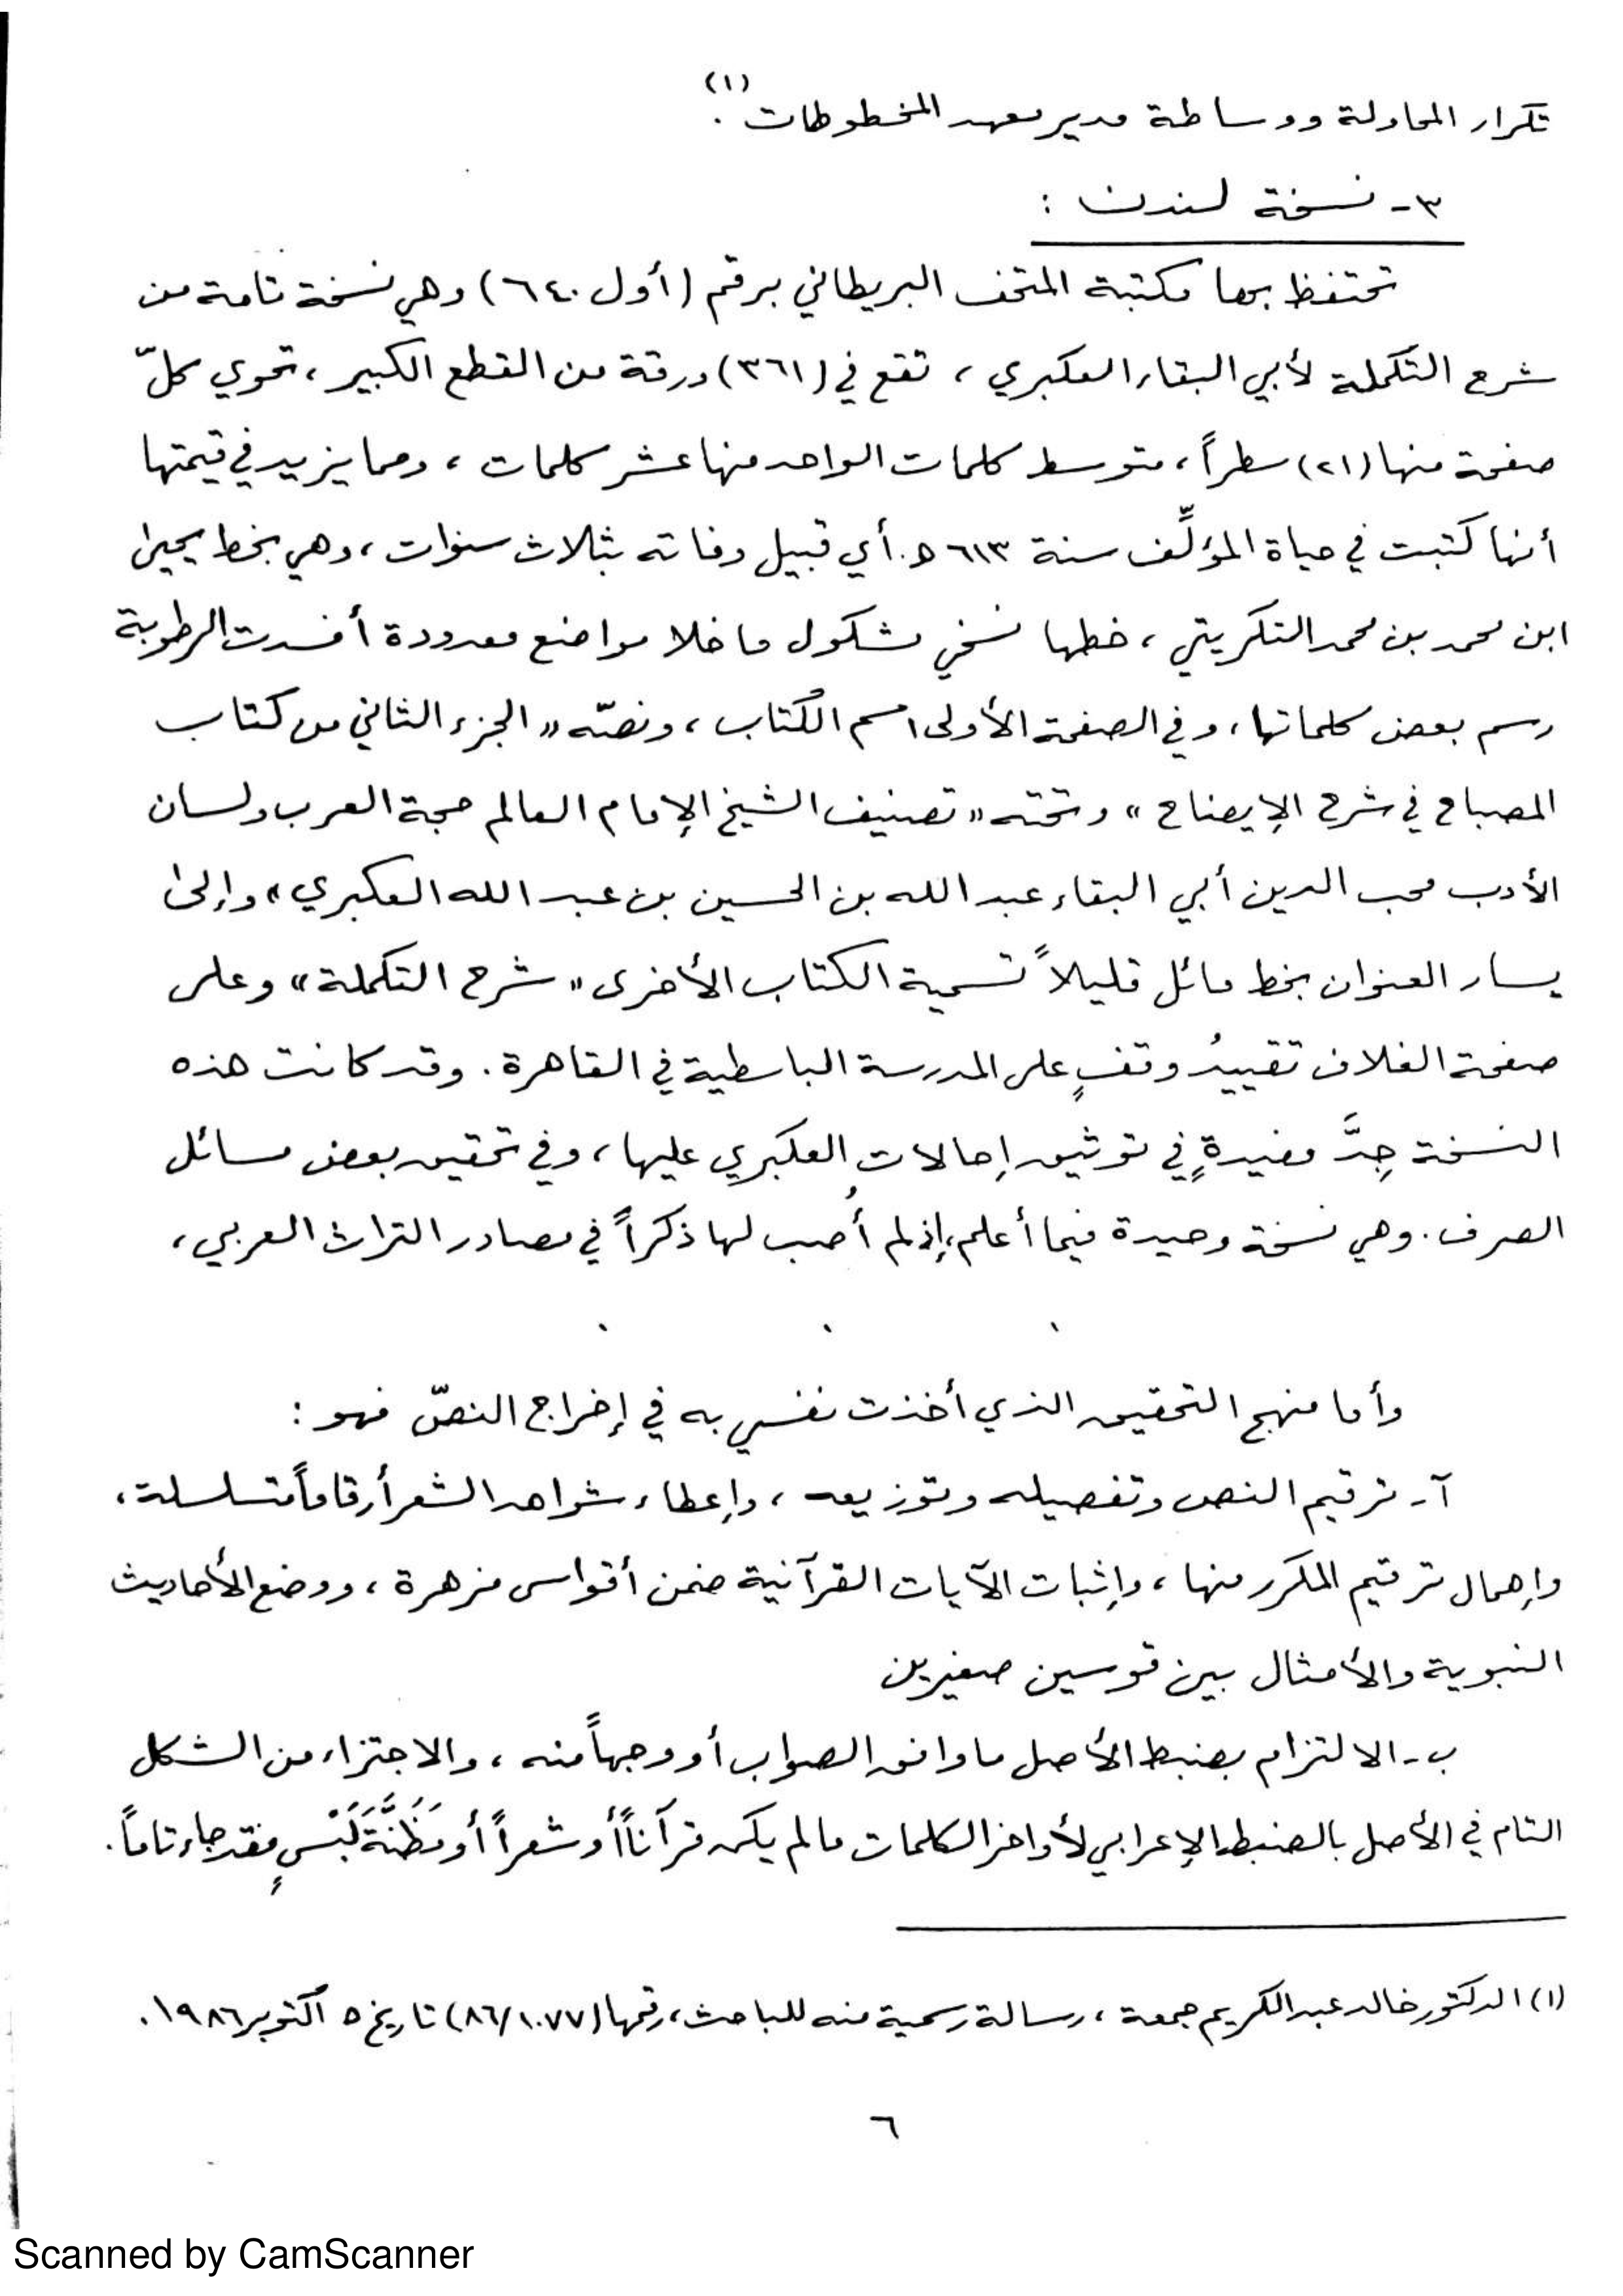 تكرار المحاولة ووساطة مدير معهد المخطوطات (١).
٣- نسخة لندن :
تحتفظ بها مكتبة المتحف البريطاني برقم (أول ٦٤٠) وهي نسخة تامة من
شرح التكملة لأبي البقاء العكبري ، تقع في (٣٦١) ورقة من القطع الكبير ، تحوي كلّ
صفحة منها (٢١) سطراً ، متوسط كلمات الواحد منها عشر كلمات ، ومما يزيد في قيمتها
أنها كتبت في حياة المؤلِّف سنة ٦١٣ هـ. أي قبيل وفاته بثلاث سنوات ، وهي بخط يحيى
ابن محمد بن محمد التكريتي ، خطها نسخي مشكول ما خلا مواضع معدودة أفسدت الرطوبة
رسم بعض كلماتها ، وفي الصفحة الأولى اسم الكتاب ، ونصّه « الجزء الثاني من كتاب
المصباح في شرح الإيضاح » وتحته « تصنيف الشيخ الإمام العالم حجة العرب ولسان
الأدب محب الدين أبي البقاء عبد الله بن الحسين بن عبد الله العكبري » وإلى
يسار العنوان بخط مائل قليلاً تسمية الكتاب الأخرى « شرح التكملة » وعلى
صفحة الغلاف تقييدُ وقفٍ على المدرسة الباسطية في القاهرة . وقد كانت هذه
النسخة جِدَّ مفيدةٍ في توثيق إحالات العكبري عليها ، وفي تحقيق بعض مسائل
الصرف . وهي نسخة وحيدة فيما أعلم ، إذ لم أُصب لها ذكراً في مصادر التراث العربي ،
وأما منهج التحقيق الذي أخذت نفسي به في إخراج النصّ فهو :
آ- ترقيم النص وتفصيله وتوزيعه ، وإعطاء شواهد الشعر أرقاماً متسلسلة ،
وإهمال ترقيم المكرر منها ، وإثبات الآيات القرآنية ضمن أقواس مزهرة ، ووضع الأحاديث
النبوية والأمثال بين قوسين صغيرين
ب- الالتزام بضبط الأصل ما وافق الصواب أو وجهاً منه ، والاجتزاء من الشكل
التام في الأصل بالضبط الإعرابي لأواخر الكلمات ما لم يكن قرآناً أو شعراً أو مَظَنَّةَ لَبْسٍ فقد جاء تاماً .
(١) الدكتور خالد عبد الكريم جمعة ، رسالة رسمية منه للباحث ، رقمها (٨٦/١٠٧٧) تاريخ ٥ أكتوبر ١٩٨٦ .
٦
Scanned by CamScanner